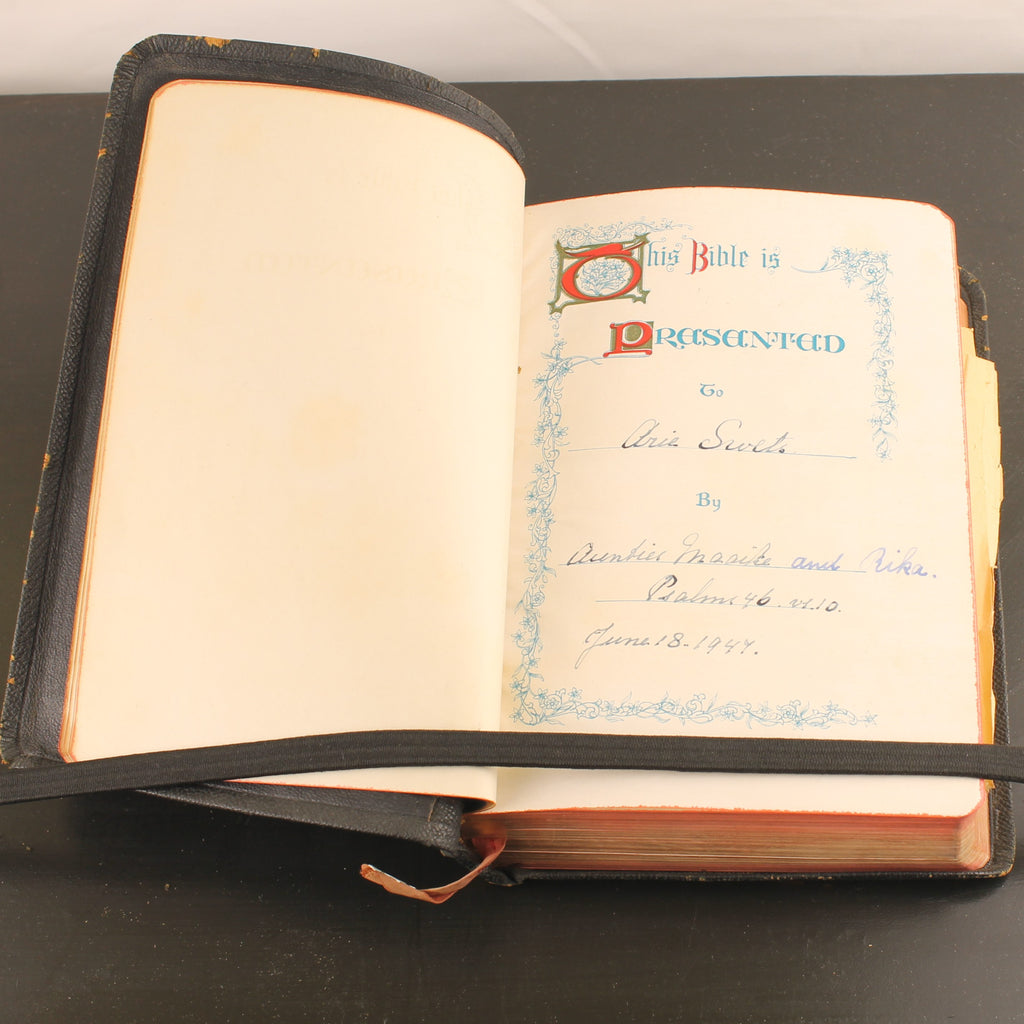 This Bible is
PRESENTED
To
Arie Swets.
By
Aunties Maaike and Rika.
Psalm 46. vs. 10.
June 18-1947.